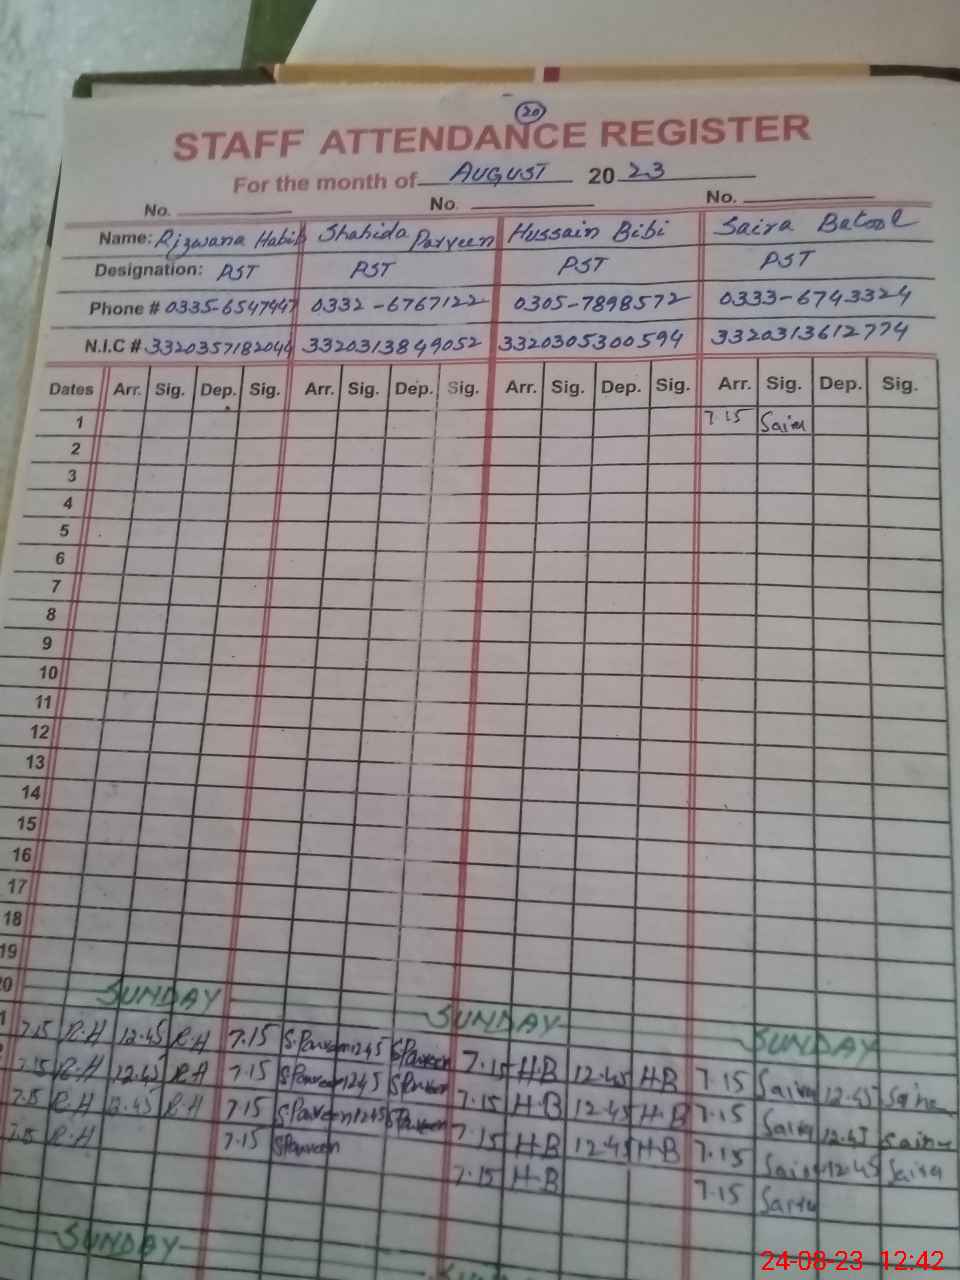 20
STAFF ATTENDANCE REGISTER
For the month of AUGUST 2023
No. No. No.
Name: Rizwana Habib Shahida Parveen Hussain Bibi Saira Batool
Designation: PST PST PST PST
Phone # 0335-6547447 0332-6767122 0305-7898572 0333-6743324
N.I.C # 3320357182044 3320313849052 3320305300594 3320313612774
Dates Arr. Sig. Dep. Sig. Arr. Sig. Dep. Sig. Arr. Sig. Dep. Sig. Arr. Sig. Dep. Sig.
1 7.15 Saira
2
3
4
5
6
7
8
9
10
11
12
13
14
15
16
17
18
19
20 SUNDAY SUNDAY SUNDAY
7.15 R.H 12.45 R.H 7.15 S.Parveen 12.45 S.Parveen 7.15 H.B 12.45 H.B 7.15 Saira 12.45 Saira
7.15 R.H 12.45 R.H 7.15 S.Parveen 12.45 S.Parveen 7.15 H.B 12.45 H.B 7.15 Saira 12.45 Saira
7.15 R.H 12.45 R.H 7.15 S.Parveen 12.45 S.Parveen 7.15 H.B 12.45 H.B 7.15 Saira 12.45 Saira
7.15 R.H 7.15 S.Parveen 7.15 H.B 7.15 Saira
SUNDAY
24-08-23 12:42